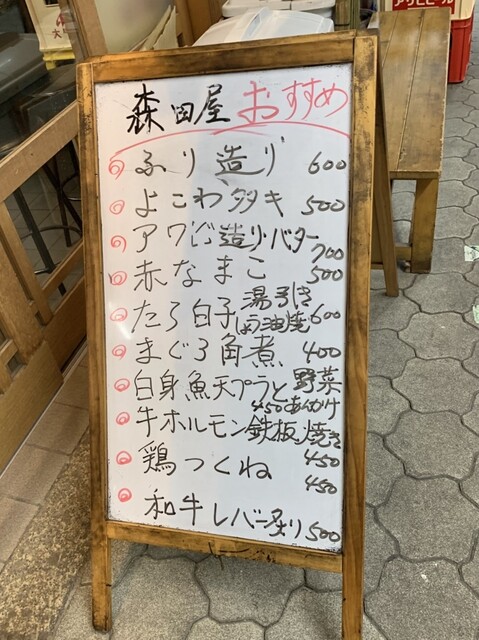 森田屋 おすすめ
ふり造り 600
よこわタタキ 500
アワビ造り・バター 700
赤なまこ 500
たら白子 湯引き しょう油焼 600
まぐろ角煮 400
白身魚天プラと野菜 あんかけ 450
牛ホルモン鉄板焼き 450
鶏つくね 450
和牛レバー炙り 500
アサヒビール